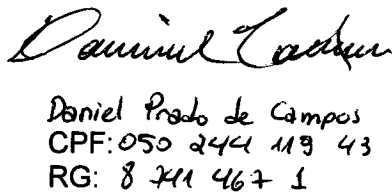 Daniel Prado de Campos
CPF: 050 244 119 43
RG: 8 741 467 1